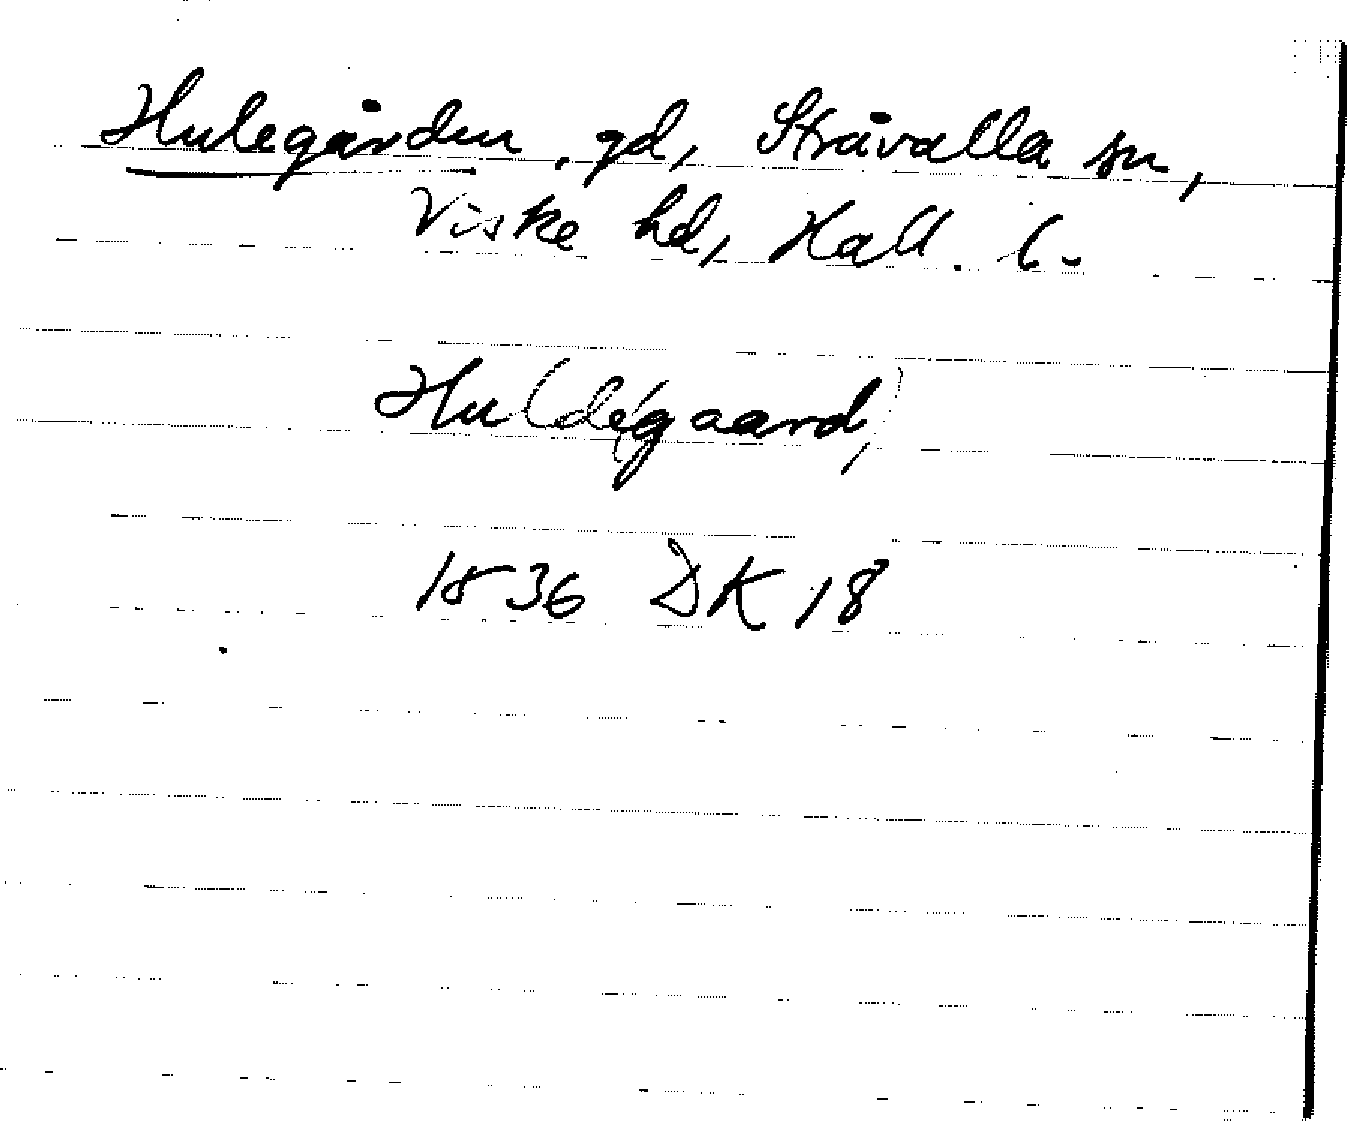 Hulegården, gd, Stråvalla sn,
Viske hd, Hall. l.
Hu(lde)gaard,
1836 DK 18